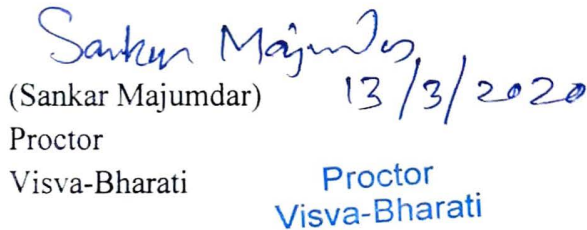 Sankar Majumdar
13/3/2020
(Sankar Majumdar)
Proctor
Visva-Bharati
Proctor
Visva-Bharati